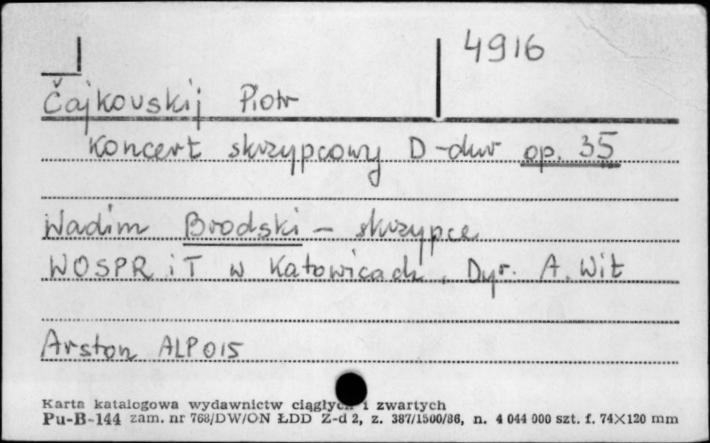 4916
Čajkovskij Piotr
Koncert skrzypcowy D-dur op. 35
Wadim Brodski - skrzypce
WOSPR i T w Katowicach, Dyr. A. Wit
Arston ALP015
Karta katalogowa wydawnictw ciągłych i zwartych
Pu-B-144 zam. nr 768/DW/ON ŁDD Z-d 2, z. 387/1500/86, n. 4 044 000 szt. f. 74×120 mm